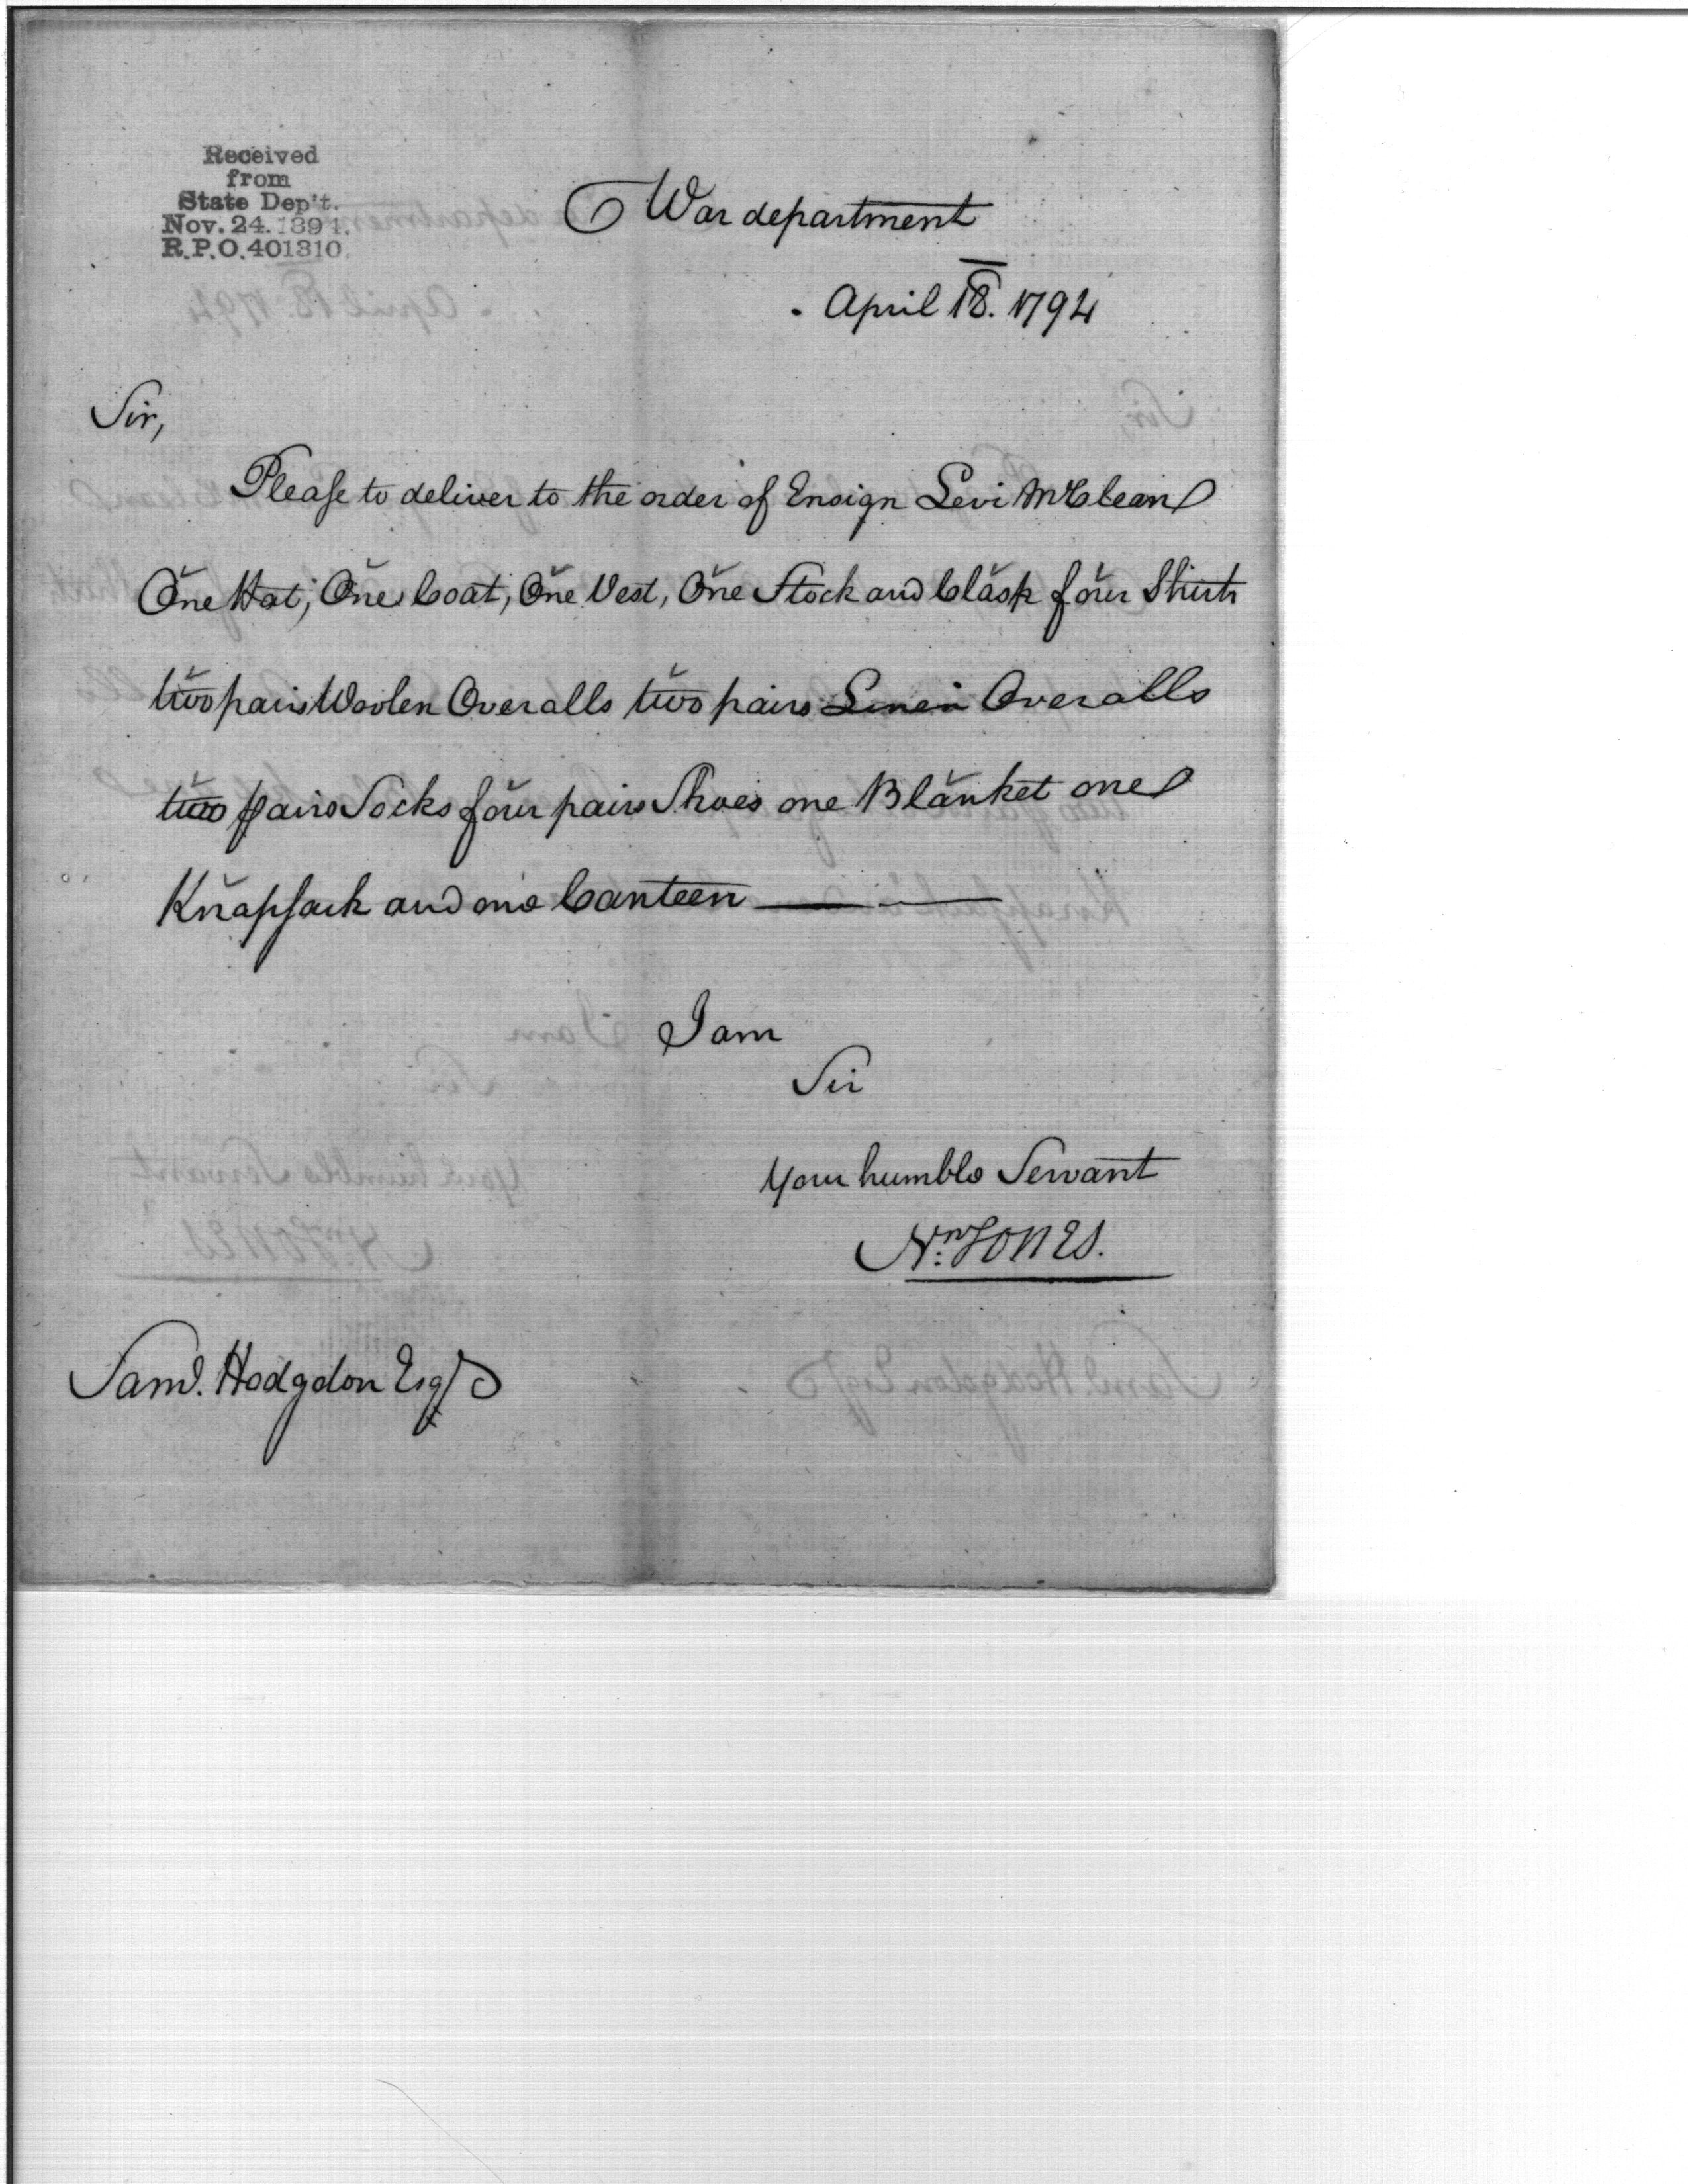 Received
from
State Dep't.
Nov. 24. 1894.
R.P.O. 401310.
War department
April 18. 1794
Sir,
Please to deliver to the order of Ensign Levi McClean
One Hat, One Coat, One Vest, One Stock and Clasp four Shirts
two pairs Woolen Overalls two pairs Linen Overalls
two pairs Socks four pairs Shoes one Blanket one
Knapsack and one Canteen
I am
Sir
Your humble Servant
Nn: JONES.
Saml. Hodgdon Esq